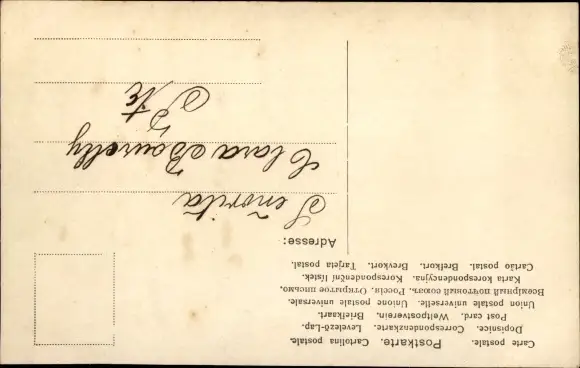 Carte postale. Postkarte. Cartolina postale.
Dopisnice. Correspondenzkarte. Levelező-Lap.
Post card. Weltpostverein. Briefkaart.
Union postale universelle. Unione postale universale.
Всемірный почтовый союзъ, Россія. Открытое письмо.
Karta korespondencyjna. Korespondenční lístek.
Cartão postal. Brefkort. Brevkort. Tarjeta postal.
Adresse:
Señorita
Clara Bourelly
Pte